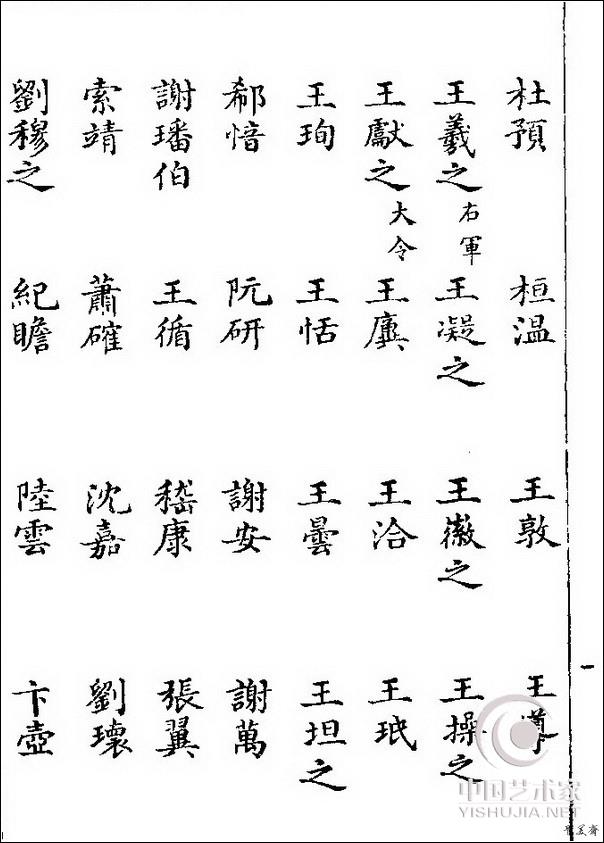 杜預 桓温 王敦 王導
王羲之 右軍 王凝之 王徽之 王操之
王獻之 大令 王廙 王洽 王珉
王珣 王恬 王曇 王坦之
郗愔 阮研 謝安 謝萬
謝璠伯 王循 嵇康 張翼
索靖 蕭確 沈嘉 劉瓌
劉穆之 紀瞻 陸雲 卞壺
一
中国艺术家
YISHUJIA.NET